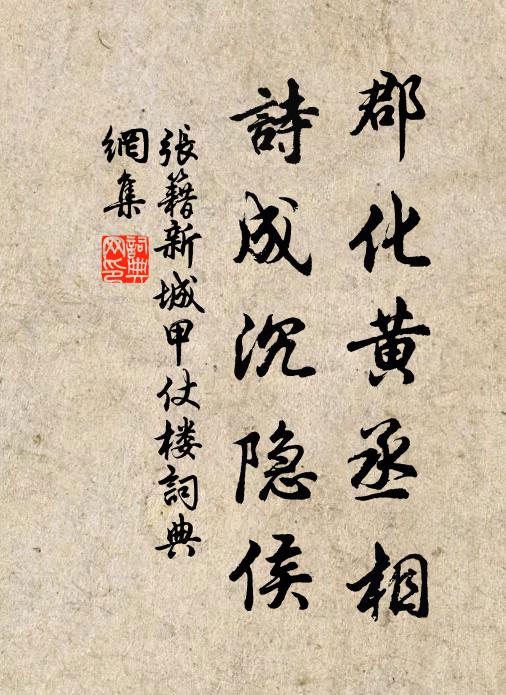 郡化黄丞相
詩成沉隐侯
張籍新城甲仗楼詞典
網集
詞典网印